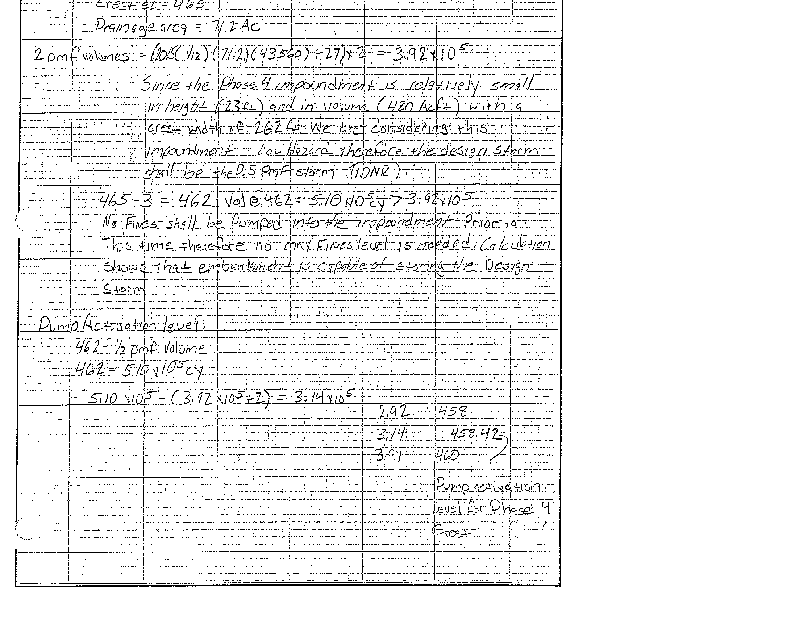 Crest el = 465
Drainage area = 71.2 Ac
2 pmf volumes = (1/12)(71.2)(43560)÷27)x2 = 3.92x10⁵
Since the Phase 4 impoundment is relatively small
in height (23ft) and in volume (480 Acft) with a
crest width of 262 ft We are considering this
impoundment Low Hazard therefore the design storm
shall be the 0.5 pmf storm (IDNR)
465-3 = 462 vol@462= 5.10 x10⁵cy > 3.92x10⁵
No Fines shall be Pumped into the impoundment Prior to
This time therefore no max Fines level is needed. Calculation
shows that embankment is capable of storing the Design
Storm
Pump Activation level
462 - ½ pmf volume
462 = 5.10 x10⁵cy
5.10 x10⁵ - (3.92 x10⁵÷2) = 3.14x10⁵
2.92 458
3.14 458.42
460
Pump activation
level for Phase 4